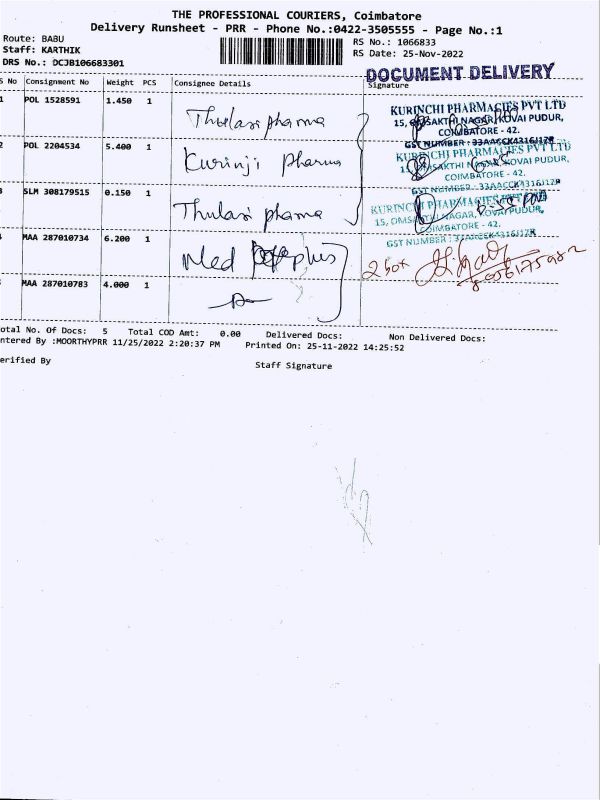 THE PROFESSIONAL COURIERS, Coimbatore
Delivery Runsheet - PRR - Phone No.:0422-3505555 - Page No.:1
Route: BABU
RS No.: 1066833
Staff: KARTHIK
RS Date: 25-Nov-2022
DRS No.: DCJB106683301
DOCUMENT DELIVERY
S No Consignment No Weight PCS Consignee Details Signature
1 POL 1528591 1.450 1 Thulasi pharma
KURINCHI PHARMACIES PVT LTD
15, OMSAKTHI NAGAR, KOVAI PUDUR,
COIMBATORE - 42.
GST NUMBER : 33AACCK4316J1ZR
2 POL 2204534 5.400 1 Kurinji pharma
KURINCHI PHARMACIES PVT LTD
15, OMSAKTHI NAGAR, KOVAI PUDUR,
COIMBATORE - 42.
GST NUMBER : 33AACCK4316J1ZR
3 SLM 308179515 0.150 1 Thulasi pharma
KURINCHI PHARMACIES PVT LTD
15, OMSAKTHI NAGAR, KOVAI PUDUR,
COIMBATORE - 42.
GST NUMBER : 33AACCK4316J1ZR
MAA 287010734 6.200 1 Med plus
2 box
MAA 287010783 4.000 1
otal No. Of Docs: 5 Total COD Amt: 0.00 Delivered Docs: Non Delivered Docs:
ntered By :MOORTHYPRR 11/25/2022 2:20:37 PM Printed On: 25-11-2022 14:25:52
erified By
Staff Signature